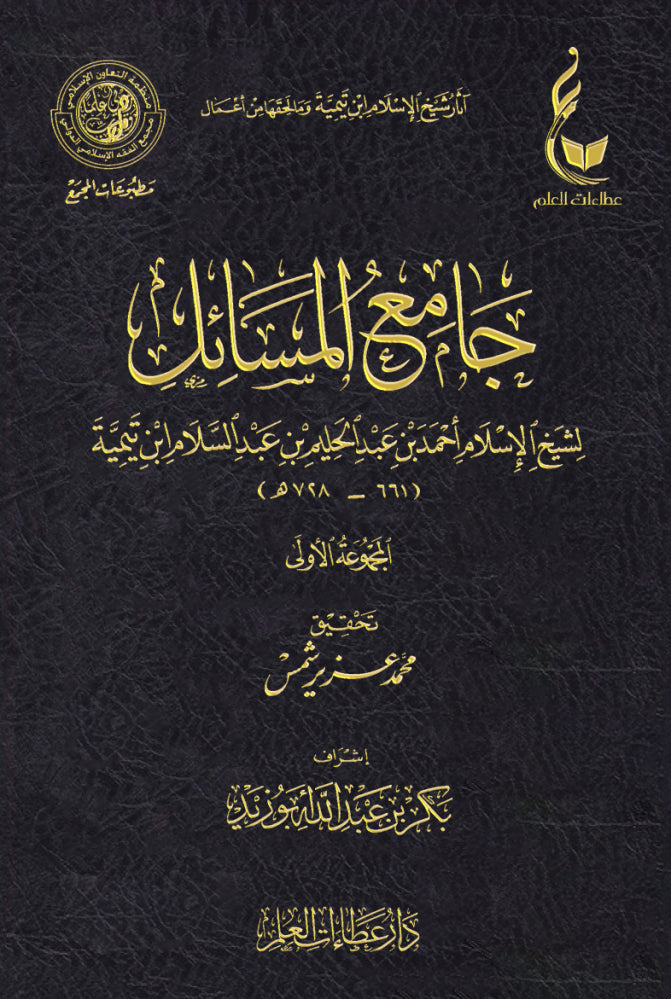 آثار شيخ الإسلام ابن تيمية وما لحقها من أعمال
عطاءات العلم
منظمة التعاون الإسلامي
مجمع الفقه الإسلامي الدولي
مَطْبُوعَات المَجْمَع
جَامِعُ المَسَائِلِ
لِشَيْخِ الإِسْلَامِ أَحْمَدَ بْنِ عَبْدِ الحَلِيمِ بْنِ عَبْدِ السَّلَامِ ابْنِ تَيْمِيَّةَ
(٦٦١ – ٧٢٨ هـ)
المَجْمُوعَةُ الأُولَى
تَحْقِيق
محمد عزير شمس
إشْرَاف
بَكْر بْن عَبْدِ اللَّه أَبُو زَيْد
دَار عَطَاءَات العِلْم